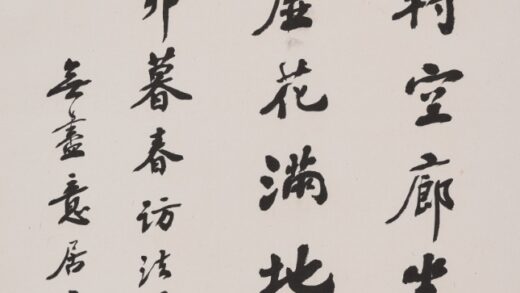 空廊坐
花滿地
卯暮春访法
無盡意居